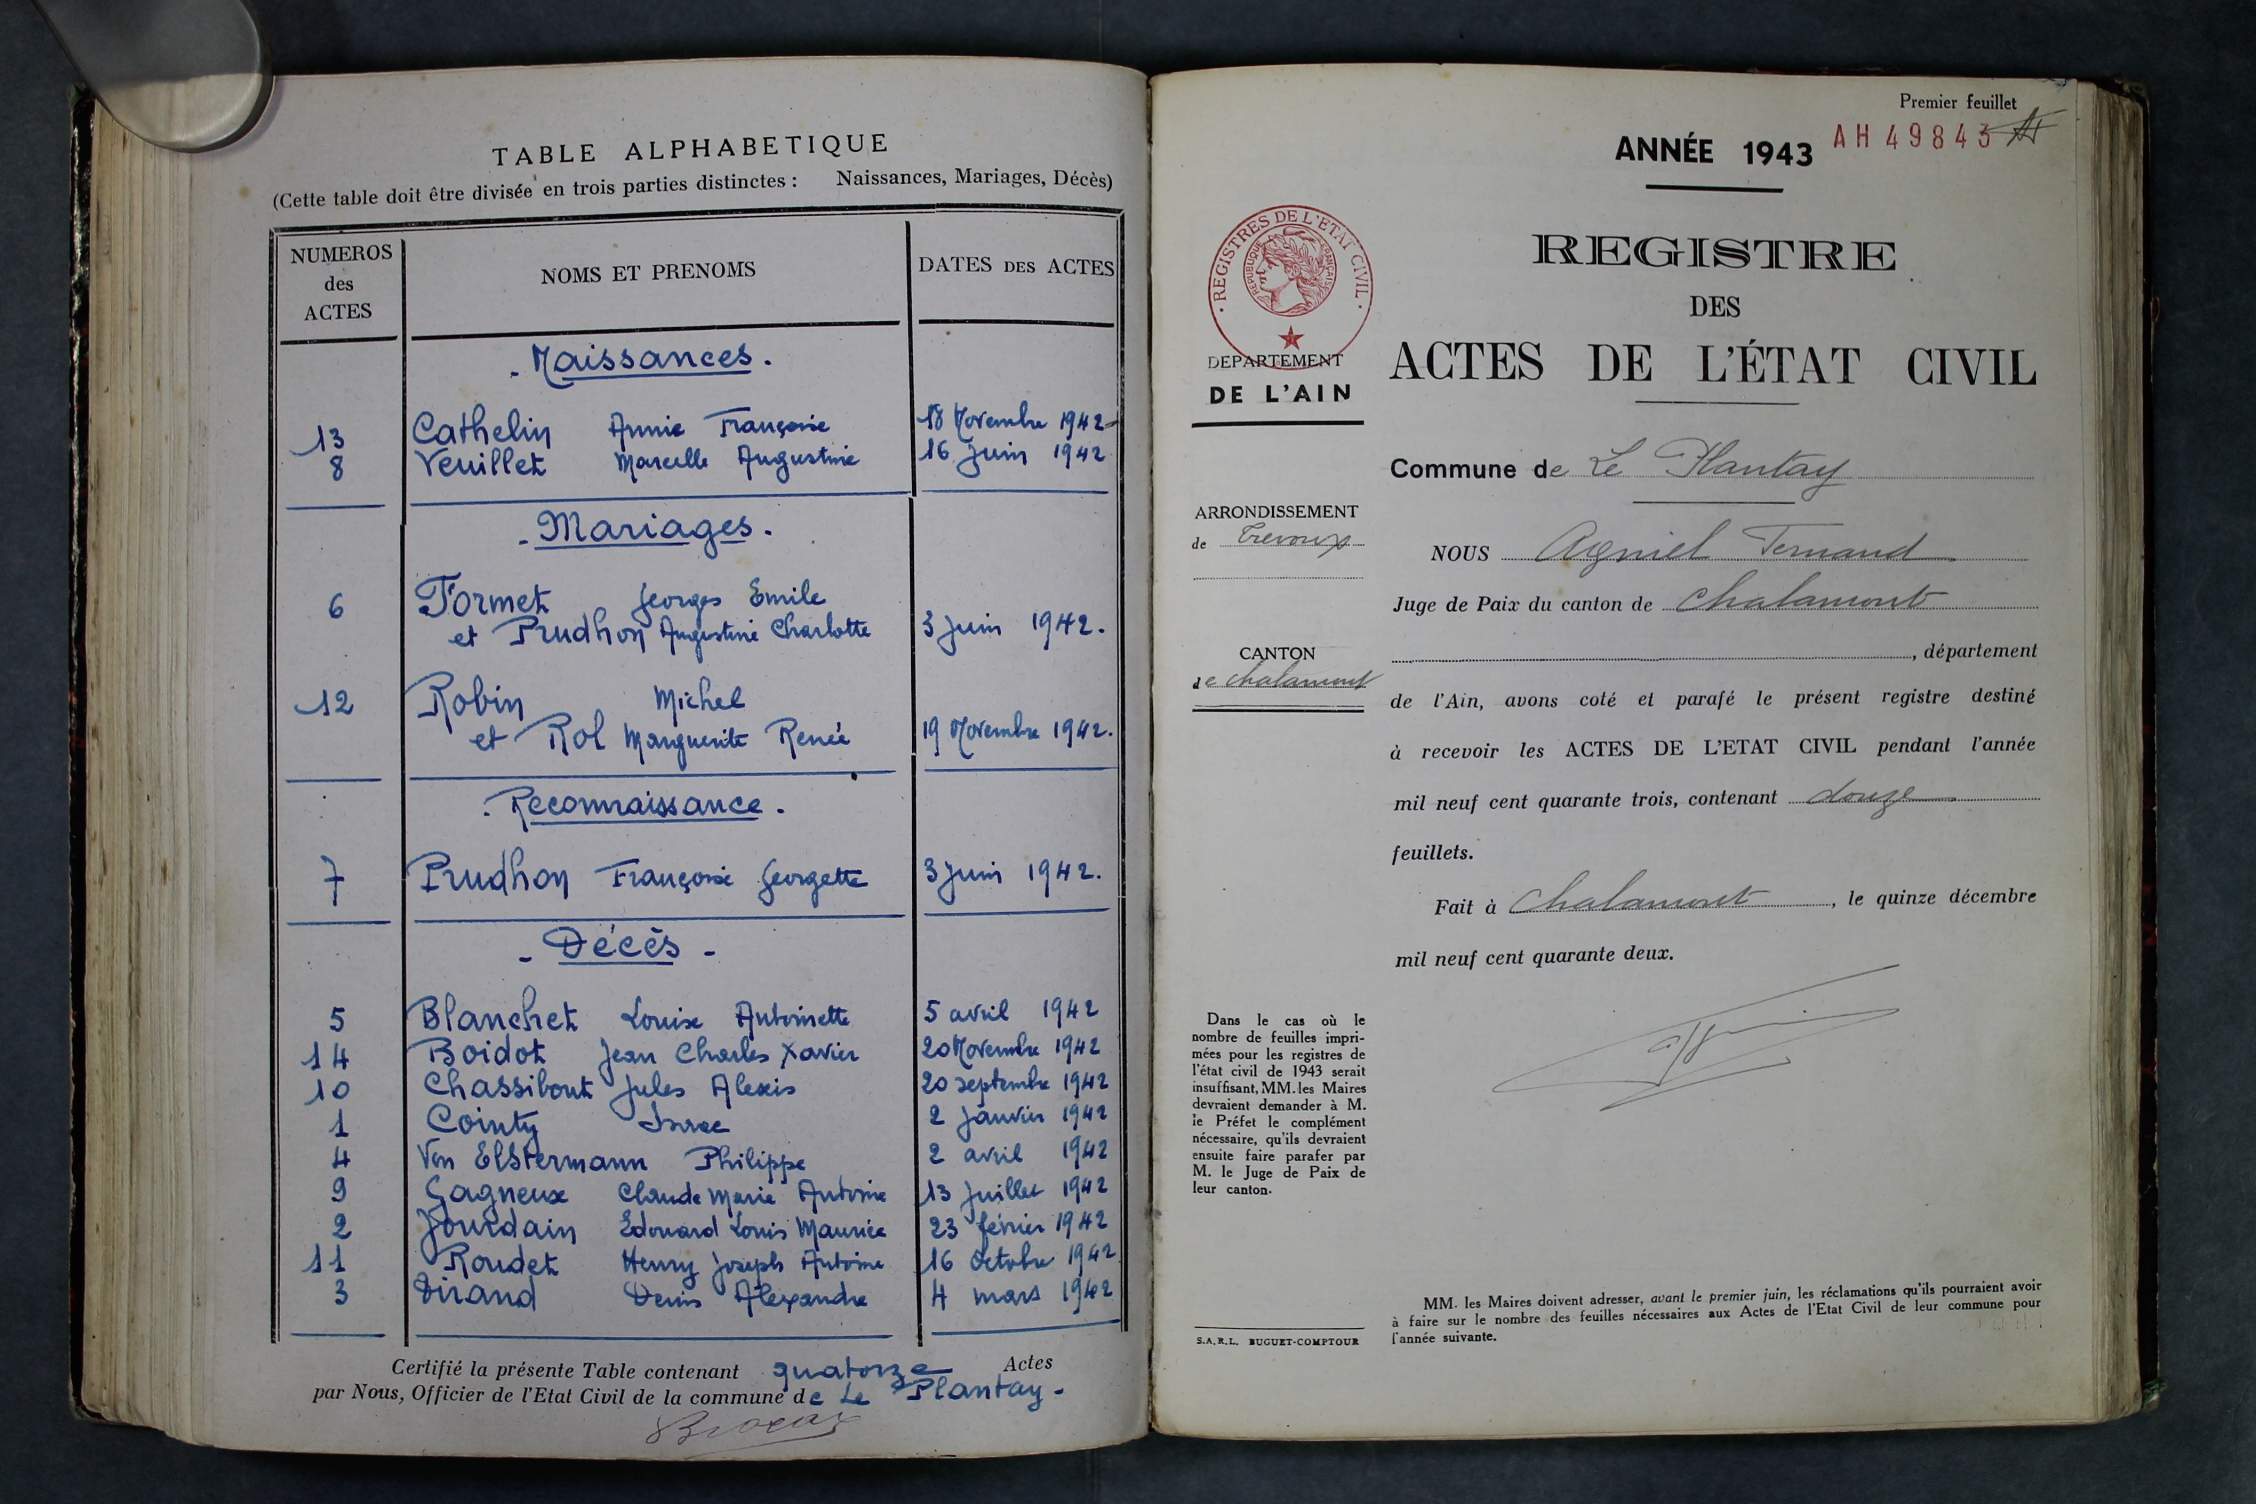 TABLE ALPHABETIQUE
(Cette table doit être divisée en trois parties distinctes : Naissances, Mariages, Décès)
NUMEROS des ACTES
NOMS ET PRENOMS
DATES DES ACTES
- Naissances -
13 Cathelin Annie Françoise 18 Novembre 1942
8 Veuillet Marcelle Augustine 16 Juin 1942
- Mariages -
6 Formet Georges Emile
et Prudhon Augustine Charlotte 3 Juin 1942.
12 Robin Michel
et Rol Marguerite Renée 19 Novembre 1942.
- Reconnaissance -
7 Prudhon Françoise Georgette 3 Juin 1942.
- Décès -
5 Blanchet Louise Antoinette 5 avril 1942
14 Boidot Jean Charles Xavier 20 Novembre 1942
10 Chassibout Jules Alexis 20 septembre 1942
1 Cointy 2 Janvier 1942
4 Von Elstermann Philippe 2 avril 1942
9 Gagneux Claude Marie Antoine 13 Juillet 1942
2 Jourdain Edouard Louis Maurice 23 février 1942
11 Roudet Henry Joseph Antoine 16 Octobre 1942
3 Tirand Denis Alexandre 4 mars 1942
Certifié la présente Table contenant quatorze Actes
par Nous, Officier de l'Etat Civil de la commune de Le Plantay -
Premier feuillet
ANNÉE 1943 AH 49843
REGISTRES DE L'ETAT CIVIL
REPUBLIQUE FRANÇAISE
REGISTRE
DES
ACTES DE L'ÉTAT CIVIL
DEPARTEMENT
DE L'AIN
ARRONDISSEMENT
de Trévoux
CANTON
de Chalamont
Commune de Le Plantay
NOUS Agniel Fernand
Juge de Paix du canton de Chalamont
, département
de l'Ain, avons coté et parafé le présent registre destiné
à recevoir les ACTES DE L'ETAT CIVIL pendant l'année
mil neuf cent quarante trois, contenant douze
feuillets.
Fait à Chalamont, le quinze décembre
mil neuf cent quarante deux.
Dans le cas où le
nombre de feuilles impri-
mées pour les registres de
l'état civil de 1943 serait
insuffisant, MM. les Maires
devraient demander à M.
le Préfet le complément
nécessaire, qu'ils devraient
ensuite faire parafer par
M. le Juge de Paix de
leur canton.
S.A.R.L. BUGUET-COMPTOUR
MM. les Maires doivent adresser, avant le premier juin, les réclamations qu'ils pourraient avoir
à faire sur le nombre des feuilles nécessaires aux Actes de l'Etat Civil de leur commune pour
l'année suivante.